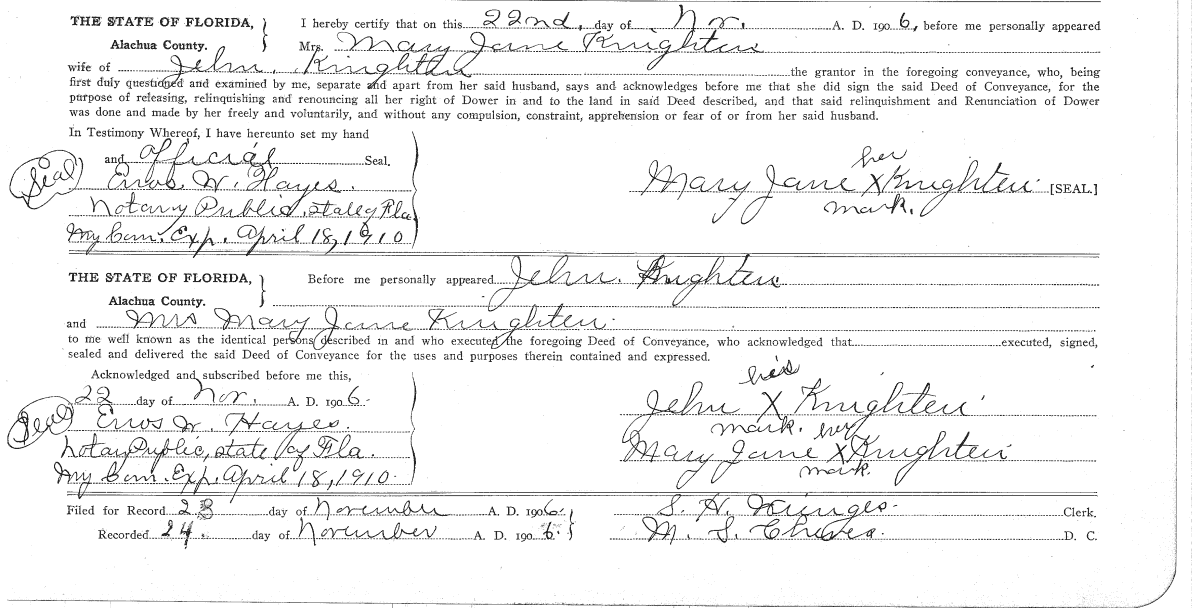 THE STATE OF FLORIDA, } I hereby certify that on this 22nd, day of Nov. A. D. 1906, before me personally appeared
Alachua County. Mrs. Mary Jane Knighten
wife of John. Knighten the grantor in the foregoing conveyance, who, being
first duly questioned and examined by me, separate and apart from her said husband, says and acknowledges before me that she did sign the said Deed of Conveyance, for the
purpose of releasing, relinquishing and renouncing all her right of Dower in and to the land in said Deed described, and that said relinquishment and Renunciation of Dower
was done and made by her freely and voluntarily, and without any compulsion, constraint, apprehension or fear of or from her said husband.
In Testimony Whereof, I have hereunto set my hand
and official Seal.
(Seal) Enos W. Hayes.
Notary Public, state of Fla
My Com. Exp. April 18, 1910
her
Mary Jane X Knighten [SEAL.]
mark.
THE STATE OF FLORIDA, } Before me personally appeared John. Knighten
Alachua County.
and Mrs Mary Jane Knighten
to me well known as the identical persons described in and who executed the foregoing Deed of Conveyance, who acknowledged that executed, signed,
sealed and delivered the said Deed of Conveyance for the uses and purposes therein contained and expressed.
Acknowledged and subscribed before me this,
22 day of Nov. A. D. 1906
(Seal) Enos W. Hayes.
Notary Public, state of Fla.
My Com. Exp. April 18, 1910
his
John X Knighten
mark. her
Mary Jane X Knighten
mark.
Filed for Record 23 day of November A. D. 1906. S. H. Clerk.
Recorded 24. day of November A. D. 1906. M. S. D. C.